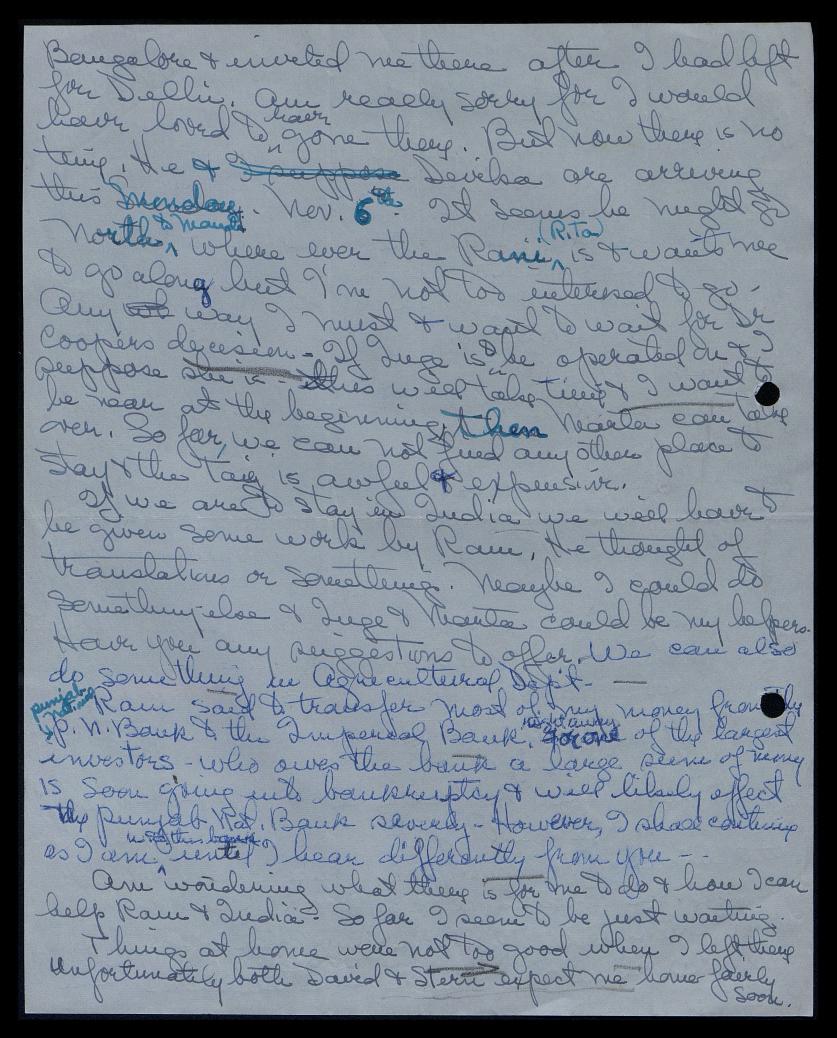 Bangalore & invited me there after I had left
for Delhi. Am really sorry for I would
have loved to have gone there. But now there is no
time. He & I suppose Devika are arriving
this Monday. Nov. 6th. It seems he might go
North & Mandi, where ever the Rani (Rita) is & wants me
to go along but I'm not too interested to go.
Any way I must & want to wait for Dr
Coopers decision - If Inge is to be operated on & I
suppose she is - this will take time & I want to
be near at the beginning, then Marta can take
over. So far, we can not find any other place to
stay & the Taj is awful & expensive.
If we are to stay in India we will have to
be given some work by Ram. He thought of
translations or something. Maybe I could do
something else & Inge & Marta could be my helpers.
Have you any suggestions to offer. We can also
do something in Agricultural Dept. -
Ram said to transfer most of my money from the
punjab national
P. N. Bank to the Imperial Bank, right away, for one of the largest
investors - who owes the bank a large sum of money
is soon going into bankruptcy & will likely effect
the Punjab Nat. Bank severly - However, I shall continue
as I am with this bank until I hear differently from you - -
Am wondering what there is for me to do & how I can
help Ram & India. So far I seem to be just waiting.
Things at home were not too good when I left there
Unfortunately both David & Stern expect me home fairly
soon.